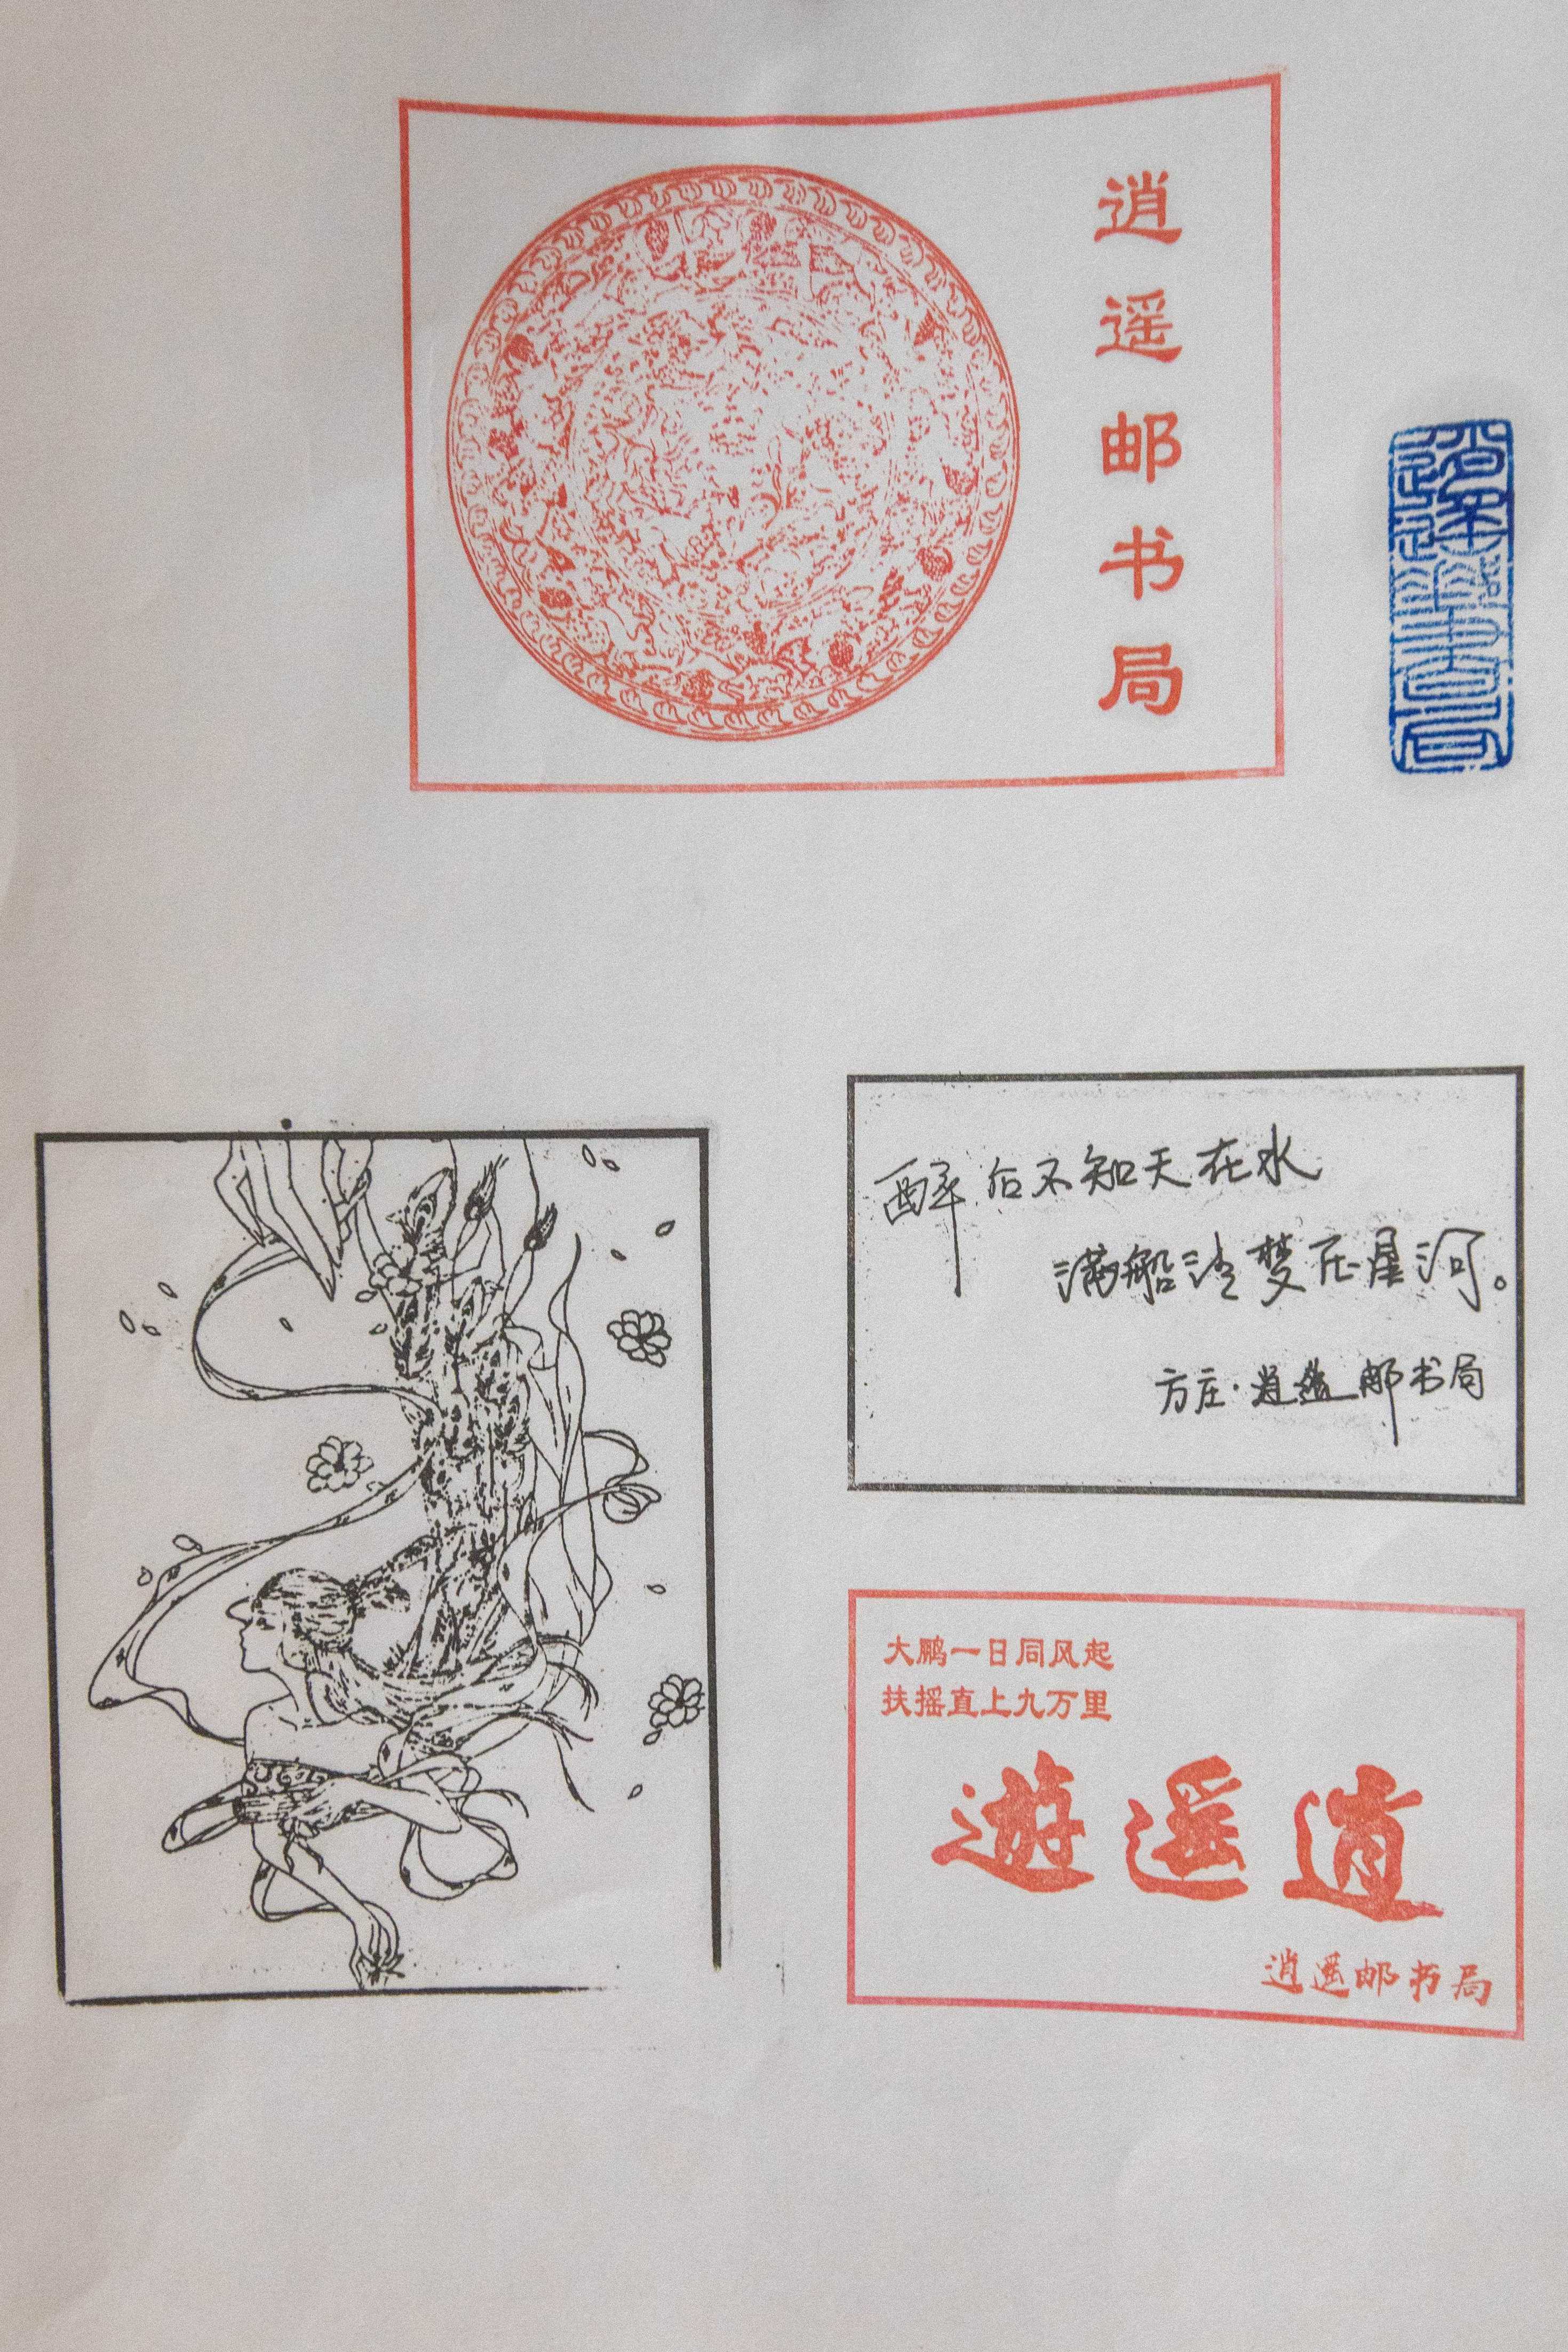 逍遥邮书局
逍遥邮书局
醉后不知天在水
满船清梦压星河。
方庄·逍遥邮书局
大鹏一日同风起
扶摇直上九万里
遊遥逍
逍遥邮书局